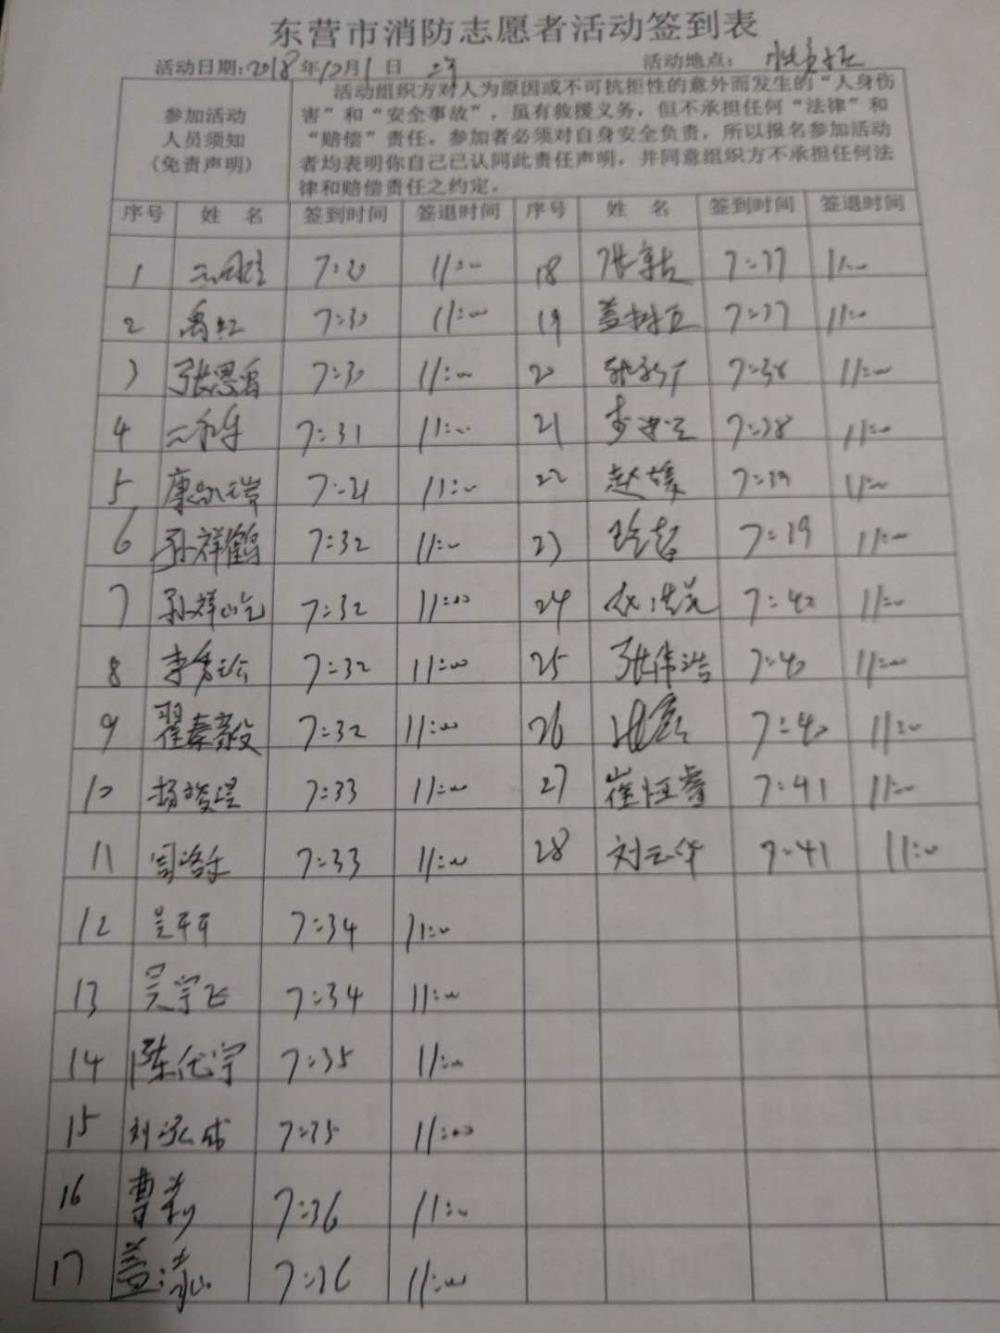 东营市消防志愿者活动签到表
活动日期:2018年10月1日 活动地点:
参加活动
人员须知
(免责声明)
活动组织方对人为原因或不可抗拒性的意外而发生的“人身伤
害”和“安全事故”,虽有救援义务,但不承担任何“法律”和
“赔偿”责任。参加者必须对自身安全负责,所以报名参加活动
者均表明你自己已认同此责任声明,并同意组织方不承担任何法
律和赔偿责任之约定。
序号 姓 名 签到时间 签退时间 序号 姓 名 签到时间 签退时间
1 7:30 11:00 18 7:37 11:00
2 7:30 11:00 19 盖树 7:37 11:00
3 张恩 7:30 11:00 20 7:38 11:00
4 7:31 11:00 21 李 7:38 11:00
5 康 7:31 11:00 22 赵 7:39 11:00
6 孙祥鹤 7:32 11:00 23 7:39 11:00
7 孙祥屹 7:32 11:00 24 7:40 11:00
8 李秀 7:32 11:00 25 张伟浩 7:40 11:00
9 翟秦毅 7:32 11:00 26 7:40 11:00
10 杨 7:33 11:00 27 崔恒睿 7:41 11:00
11 7:33 11:00 28 刘云华 7:41 11:00
12 7:34 11:00
13 吴宇飞 7:34 11:00
14 陈代宇 7:35 11:00
15 刘泓成 7:35 11:00
16 曹 7:36 11:00
17 盖 7:36 11:00